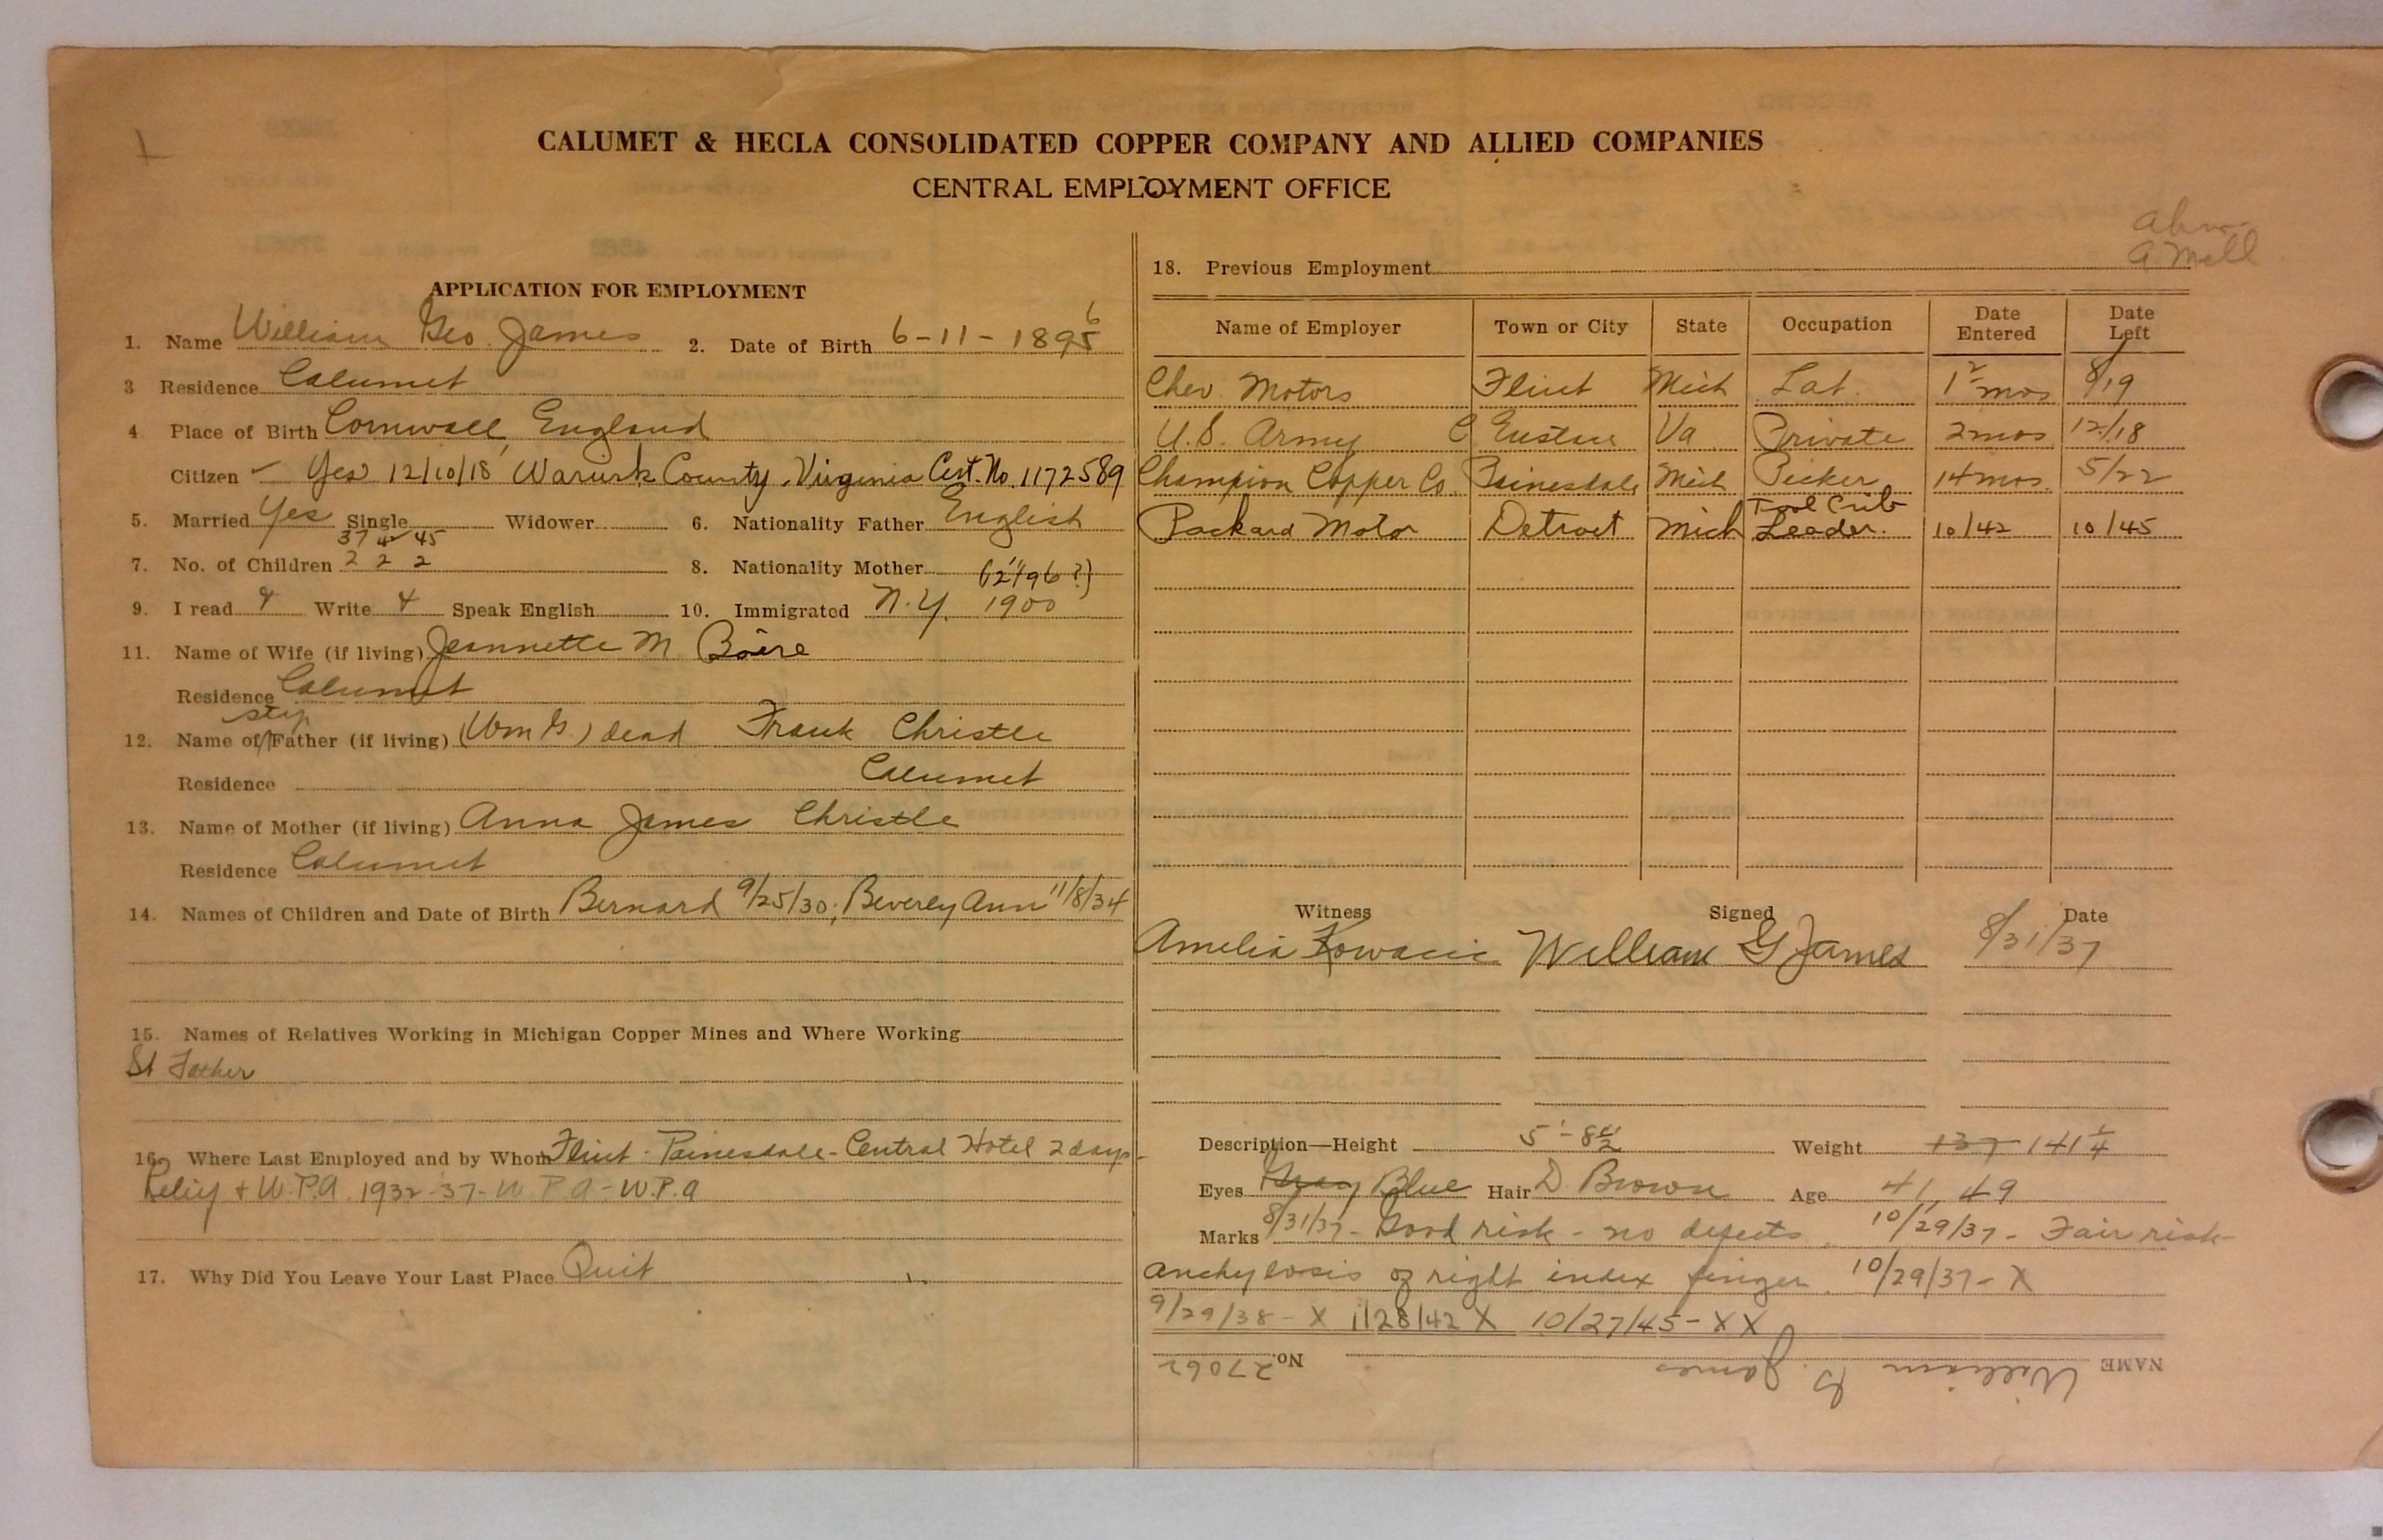 CALUMET & HECLA CONSOLIDATED COPPER COMPANY AND ALLIED COMPANIES
CENTRAL EMPLOYMENT OFFICE
APPLICATION FOR EMPLOYMENT
1. Name William Geo. James 2. Date of Birth 6-11-1895 6
3 Residence Calumet
4. Place of Birth Cornwall, England
Citizen Yes 12/10/18 County, Virginia Cert. No. 1172589
5. Married Yes Single Widower 6. Nationality Father English
37 42 45
7. No. of Children 2 2 2 8. Nationality Mother
9. I read Write Speak English 10. Immigrated N.Y. 1900
11. Name of Wife (if living) Jeannette M
Residence Calumet
step
12. Name of Father (if living) (Wm G.) dead Frank Christle
Residence Calumet
13. Name of Mother (if living) Anna James Christle
Residence Calumet
14. Names of Children and Date of Birth Bernard 9/25/30; Beverly Ann 11/8/34
15. Names of Relatives Working in Michigan Copper Mines and Where Working
St Father
16. Where Last Employed and by Whom Flint - Painesdale - Central Hotel 2 days -
Relief + W.P.A. 1932-37- W.P.A - W.P.A
17. Why Did You Leave Your Last Place Quit
A Mill
18. Previous Employment
Name of Employer Town or City State Occupation Date Entered Date Left
Chev. Motors Flint Mich Lab. mos 8/19
U.S. Army C. Eustice Va Private 2 mos 12/18
Champion Copper Co. Painesdale Mich Picker 14 mos. 5/22
Packard Motor Detroit Mich Tool Crib Leader. 10/42 10/45
Witness Signed Date
Amelia William G James 8/31/37
Description—Height 5'-8 1/2" Weight 137 141 1/4
Eyes Gray Blue Hair D. Brown Age 41, 49
Marks 8/31/37- Good risk - no defects. 10/29/37- Fair risk-
anchylosis of right index finger. 10/29/37- X
9/29/38- X 1/28/42 X 10/27/45- XX
NAME William G. James No. 27062